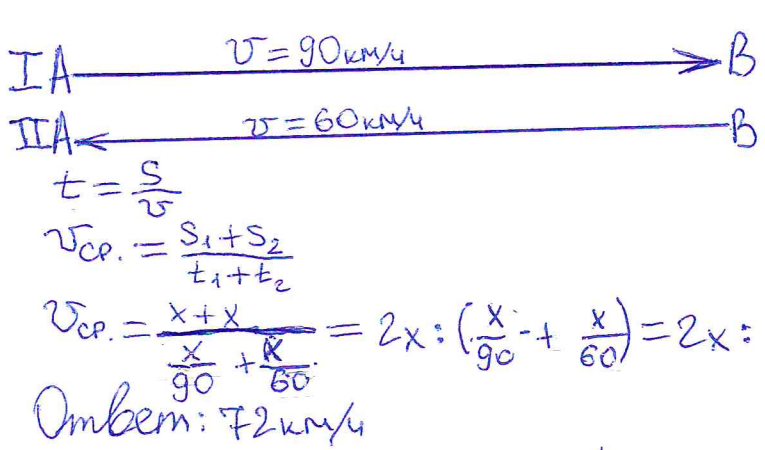 I A v = 90 км/ч B
II A v = 60 км/ч B
t = S/v
v ср. = (S₁ + S₂)/(t₁ + t₂)
v ср. = (x + x)/(x/90 + x/60) = 2x : (x/90 + x/60) = 2x :
Ответ: 72 км/ч